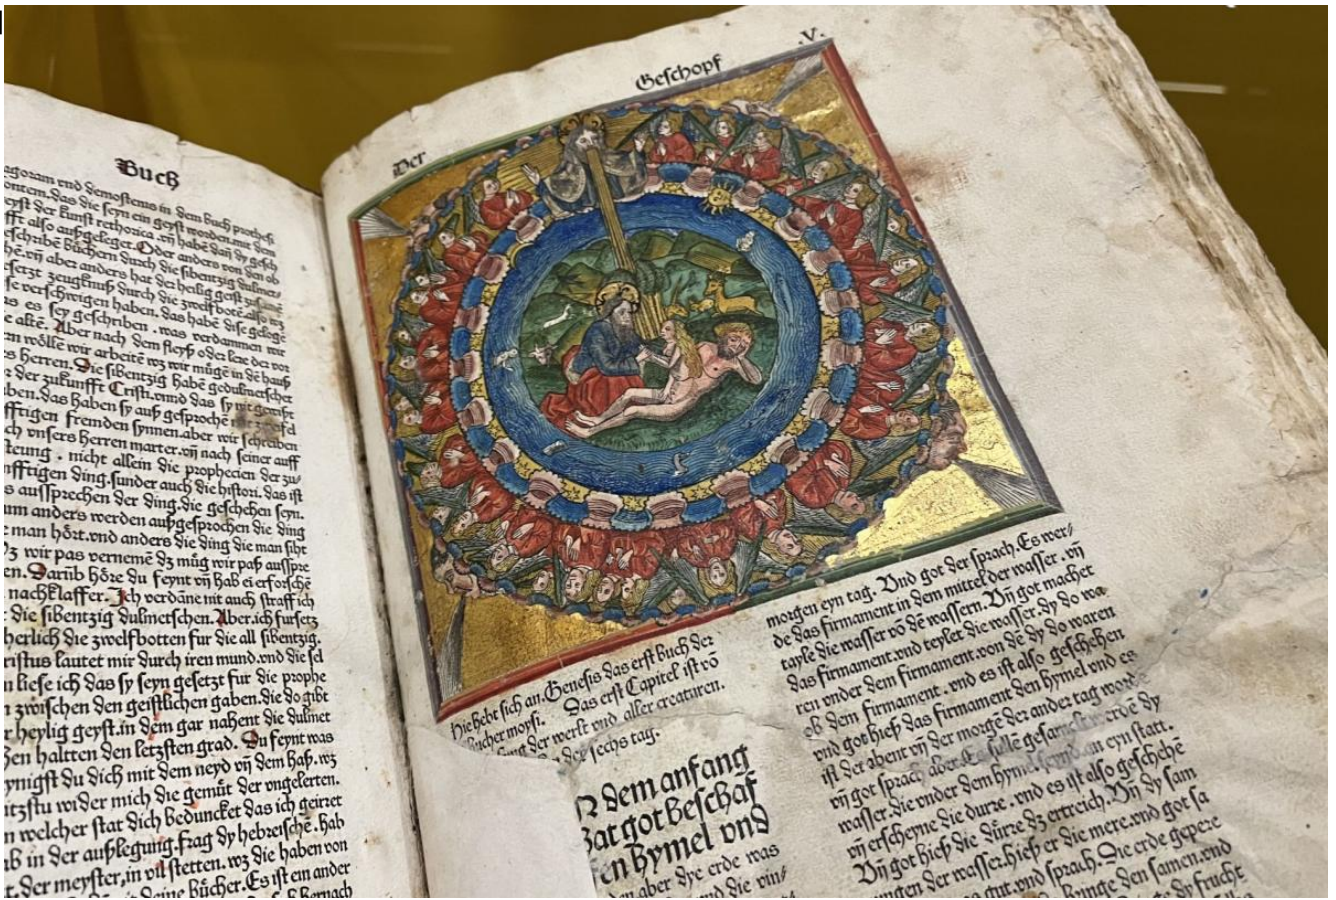 Buch
agoram vnd demostenis in dem buch prothesi
ontem. das die seyn ein geyst worden. mit dem
eyst der kunst rethorica. vñ habē dañ dy gesch
fft also außgeleget. Oder anders von den ob
eschribē büchern durch die sibentzig dulmets
he. vñ aber anders hat der heilig geist
setzt zeugknuß durch die zwelfbotē. also wz
se verschwigen haben. das habē dise geloge
as es sey geschriben. was verdammen wir
e altē. Aber nach dem fleyß oder lere der vor
en wölle wir arbeitē wz wir mügē in dē hauß
s herren. Die sibentzig habē gedulmetschet
r der zukunfft Cristi. vnnd das sy nit gewißt
ben. das haben sy auß gesprochē mit
fftigen fremden synnen. aber wir schreiben
ch vnsers herren marter. vñ nach seiner auff
teung. nicht allein die prophecien der zu/
nfftigen ding. sunder auch die histori. das ist
s außsprechen der ding. die geschehen seyn.
um anders werden außgesprochen die ding
e man hört. vnd anders die ding die man siht
z wir pas vernemē dz müg wir paß ausspre
en. Darüb höre du feynt vñ hab ei erforschē
nachklaffer. Ich verdāne nit auch straff ich
die sibentzig dulmetschen. Aber. ich fursetz
herlich die zwelfbotten fur die all sibentzig.
ristus lautet mir durch iren mund. vnd die sel
n liese ich das sy seyn gesetzt fur die prophe
n zwischen den geistlichen gaben. die do gibt
r heylig geyst. in dem gar nahent die dulmet
en haltten den letzsten grad. Du feynt was
ynigst du dich mit dem neyd vñ dem haß. wz
itzstu wider mich die gemüt der vngelerten.
n welcher stat dich beduncket das ich geirret
ab in der außlegung. frag dy hebreischē. hab
t. der meyster, in vil stetten. wz die haben von
deine bücher. Es ist ein ander
Der Geschopf .V.
Hie hebt sich an. Genesis das erst buch der
bucher moysi. Das erst Capitel ist vō
der werlt vnd aller creaturen.
der sechs tag.
dem anfang
hat got beschaf
en hymel vnd
aber dye erde was
vnd die vin/
morgen eyn tag. Vnd got der sprach. Es wer/
de das firmament in dem mittel der wasser. vñ
tayle die wasser vō dē wassern. Vñ got machet
das firmament. vnd teylet die wasser. dy do wa
ren vnder dem firmament. von dē dy do waren
ob dem firmament. vnd es ist also geschehen
vnd got hieß das firmament den hymel vnd es
ist der abent vñ der morgē der ander tag worde
vñ got sprach aber. Es sullē gesamelt werdē dy
wasser. die vnder dem hymel seynd an eyn statt.
vñ erscheyne die durre. vnd es ist also geschehē
Vñ got hieß die dürre dz ertreich. Vñ dy sam
ungen der wasser. hieß er die mere. vnd got sa
gut. vnd sprach. Die erde gepere
bringe den samen. vnd
frucht